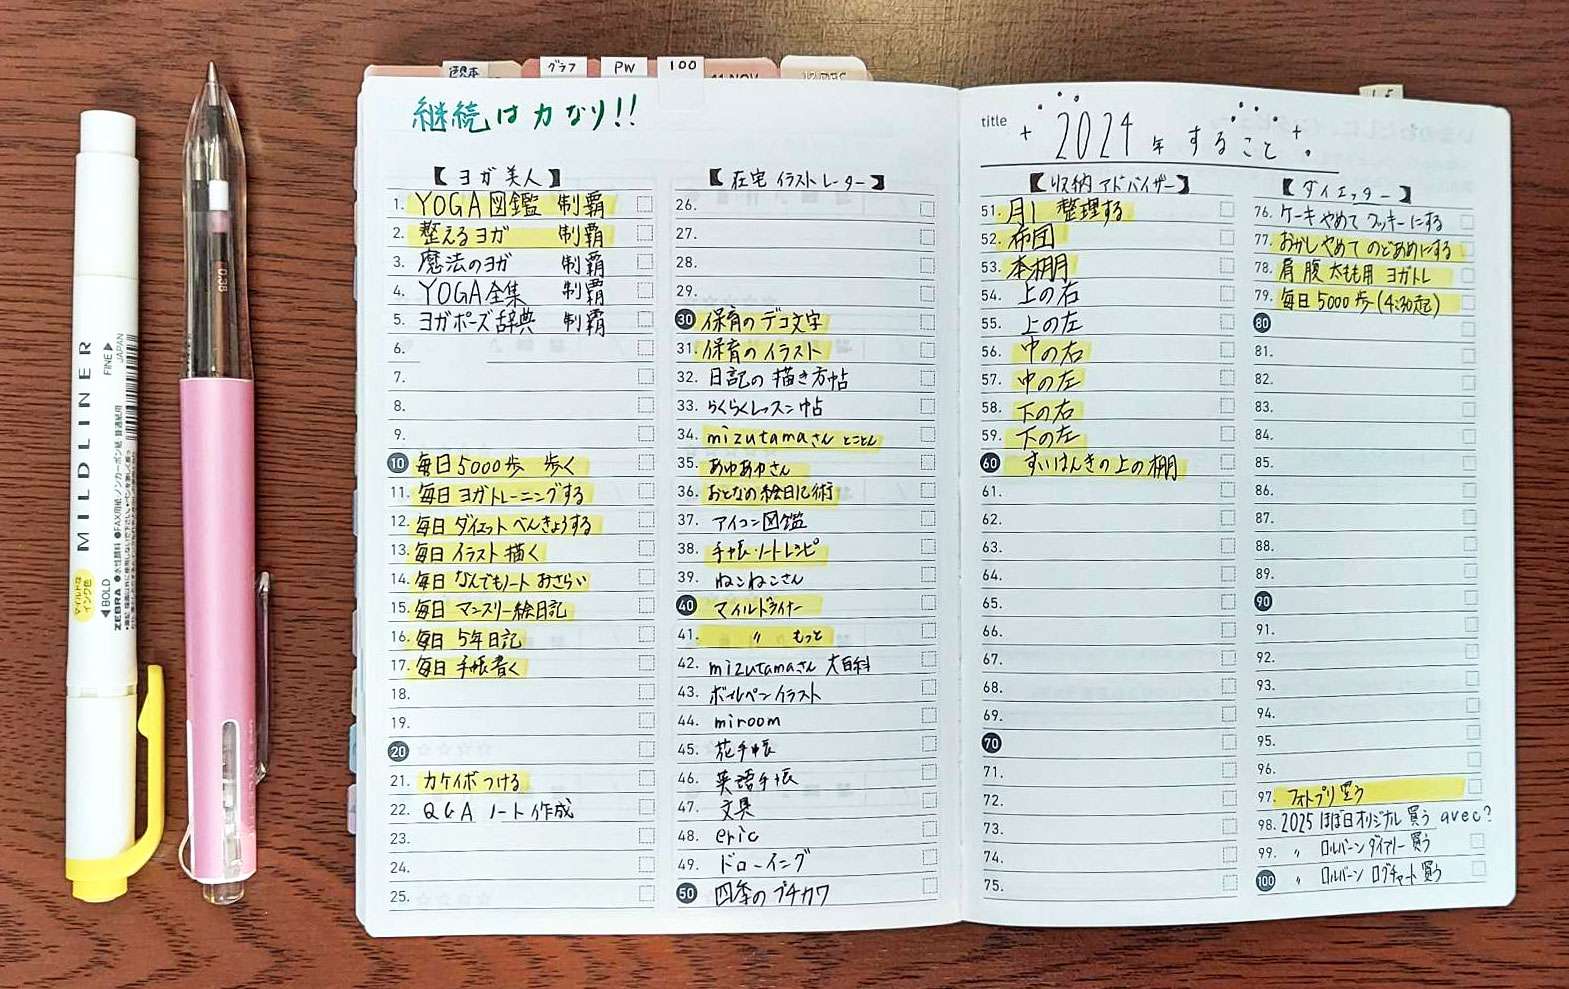 MILDLINER
FINE▶
JAPAN
マイルドな
インク色
◀BOLD
ZEBRA ●水性顔料 ●FAX用紙・ノンカーボン紙・普通紙用
0.38
見本
グラフ
PW
100
11 NOV
12 DEC
継続は力なり!!
【ヨガ美人】
1. YOGA図鑑 制覇
2. 整えるヨガ 制覇
3. 魔法のヨガ 制覇
4. YOGA全集 制覇
5. ヨガポーズ辞典 制覇
6.
7.
8.
9.
10 毎日5000歩 歩く
11. 毎日ヨガトレーニングする
12. 毎日ダイエットべんきょうする
13. 毎日イラスト描く
14. 毎日なんでもノートおさらい
15. 毎日マンスリー絵日記
16. 毎日 5年日記
17. 毎日 手帳書く
18.
19.
20
21. カケイボつける
22. Q&A ノート作成
23.
24.
25.
【在宅イラストレーター】
26.
27.
28.
29.
30 保育のデコ文字
31. 保育のイラスト
32. 日記の描き方帖
33. らくらくレッスン帖
34. mizutamaさん とことん
35. あゆあゆさん
36. おとなの絵日記術
37. アイコン図鑑
38. 手帳・ノートレシピ
39. ねこねこさん
40 マイルドライナー
41. 〃 もっと
42. mizutamaさん 大百科
43. ボールペンイラスト
44. miroom
45. 花手帳
46. 英語手帳
47. 文具
48. eric
49. ドローイング
50 四季のプチカワ
title
2024年すること
【収納アドバイザー】
51. 月1 整理する
52. 布団
53. 本棚
54. 上の右
55. 上の左
56. 中の右
57. 中の左
58. 下の右
59. 下の左
60 すいはんきの上の棚
61.
62.
63.
64.
65.
66.
67.
68.
69.
70
71.
72.
73.
74.
75.
【ダイエッター】
76. ケーキやめてクッキーにする
77. おかしやめてのどあめにする
78. 肩腹太もも用 ヨガトレ
79. 毎日5000歩(4:30起)
80
81.
82.
83.
84.
85.
86.
87.
88.
89.
90
91.
92.
93.
94.
95.
96.
97. フォトプリ買う
98. 2025ほぼ日オリジナル買う avec?
99. 〃 ロルバーンダイアリー買う
100 〃 ロルバーン ログチャート買う